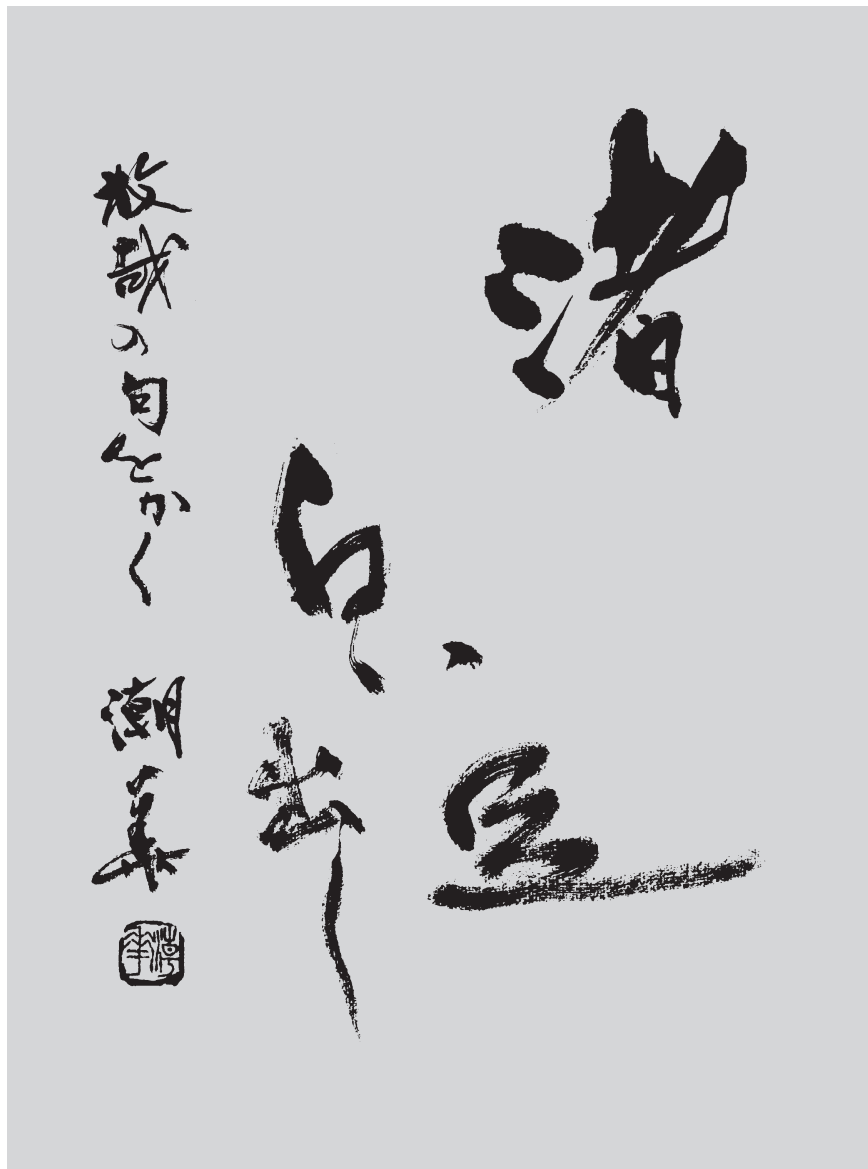 渚
白い
足
出し
放哉の句をかく 潮華